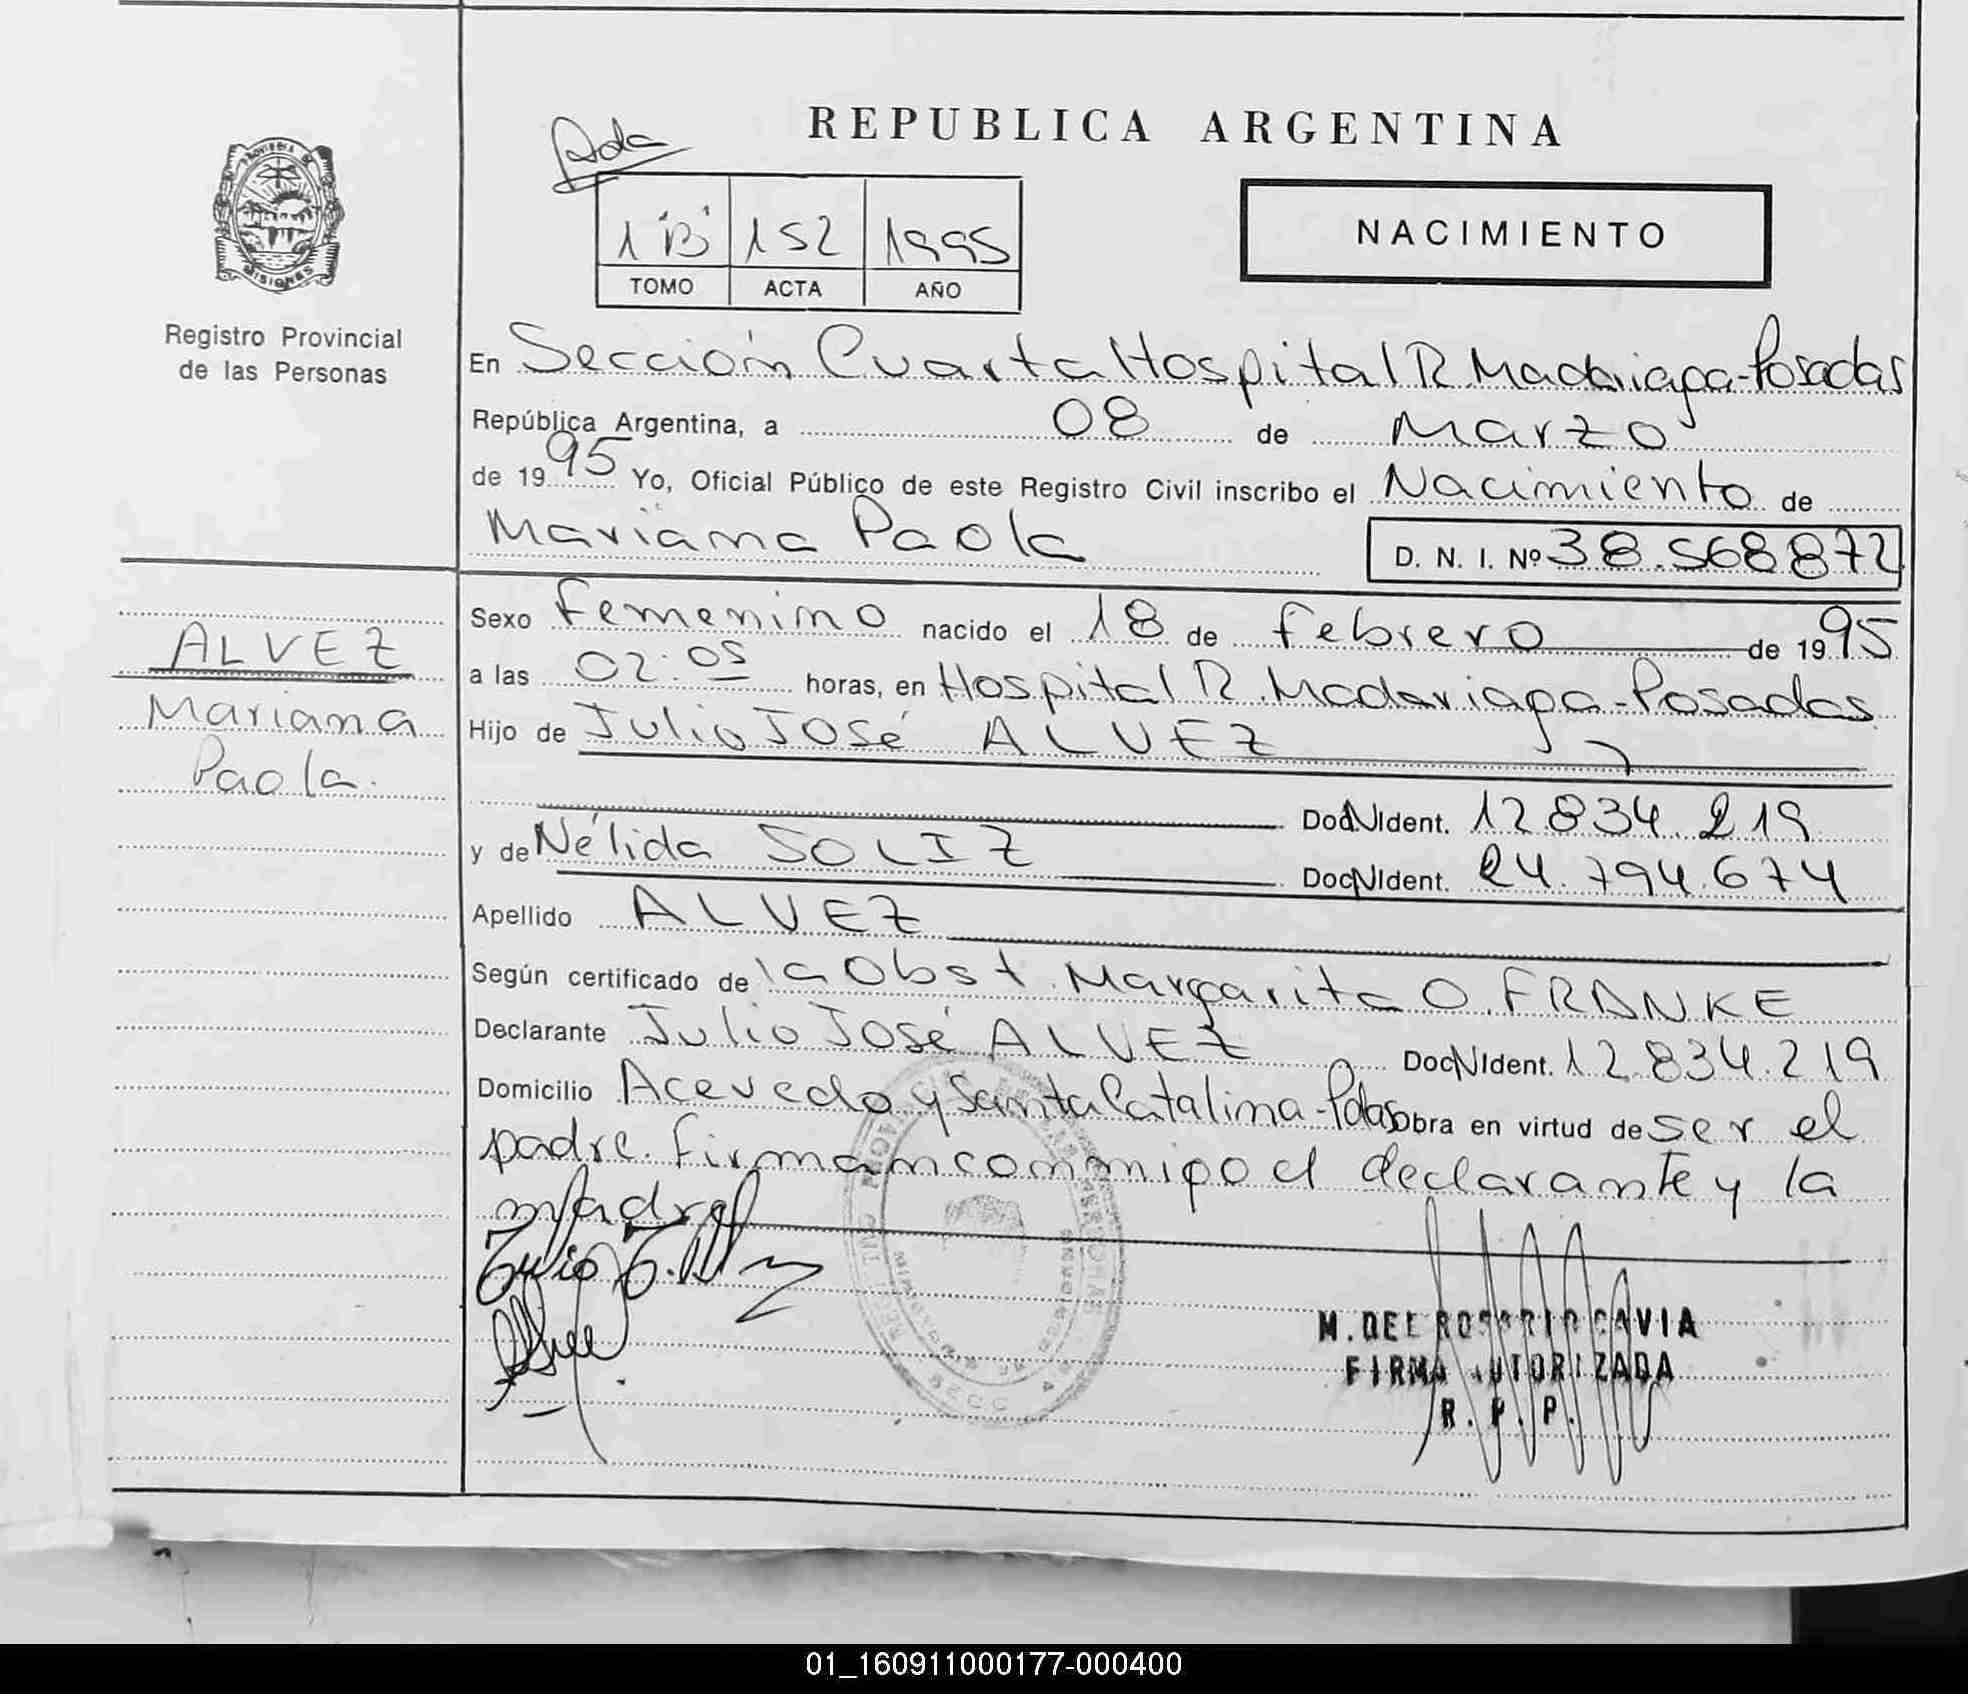 REPUBLICA ARGENTINA
Ada
1 "B" 152 1995
TOMO ACTA AÑO
NACIMIENTO
PROVINCIA DE
MISIONES
Registro Provincial
de las Personas
En Sección Cuarta Hospital R. Madariaga-Posadas
República Argentina, a 08 de Marzo
de 1995 Yo, Oficial Público de este Registro Civil inscribo el Nacimiento de
Mariana Paola
D. N. I. Nº 38.568872
ALVEZ
Mariana
Paola.
Sexo femenino nacido el 18 de febrero de 1995
a las 02:05 horas, en Hospital R. Madariaga-Posadas
Hijo de Julio José ALVEZ
Doc.N.Ident. 12.834.219
y de Nélida SOLIZ
Doc.N.Ident. 24.794.674
Apellido ALVEZ
Según certificado de la Obst. Margarita O. FRANKE
Declarante Julio José ALVEZ Doc.N.Ident. 12.834.219
Domicilio Acevedo y Santa Catalina-Pdas obra en virtud de ser el
padre. Firman conmigo el declarante y la
madre
Julio J. Alvez
M. DEL ROSARIO GAVIA
FIRMA AUTORIZADA
R. P. P.
01_160911000177-000400